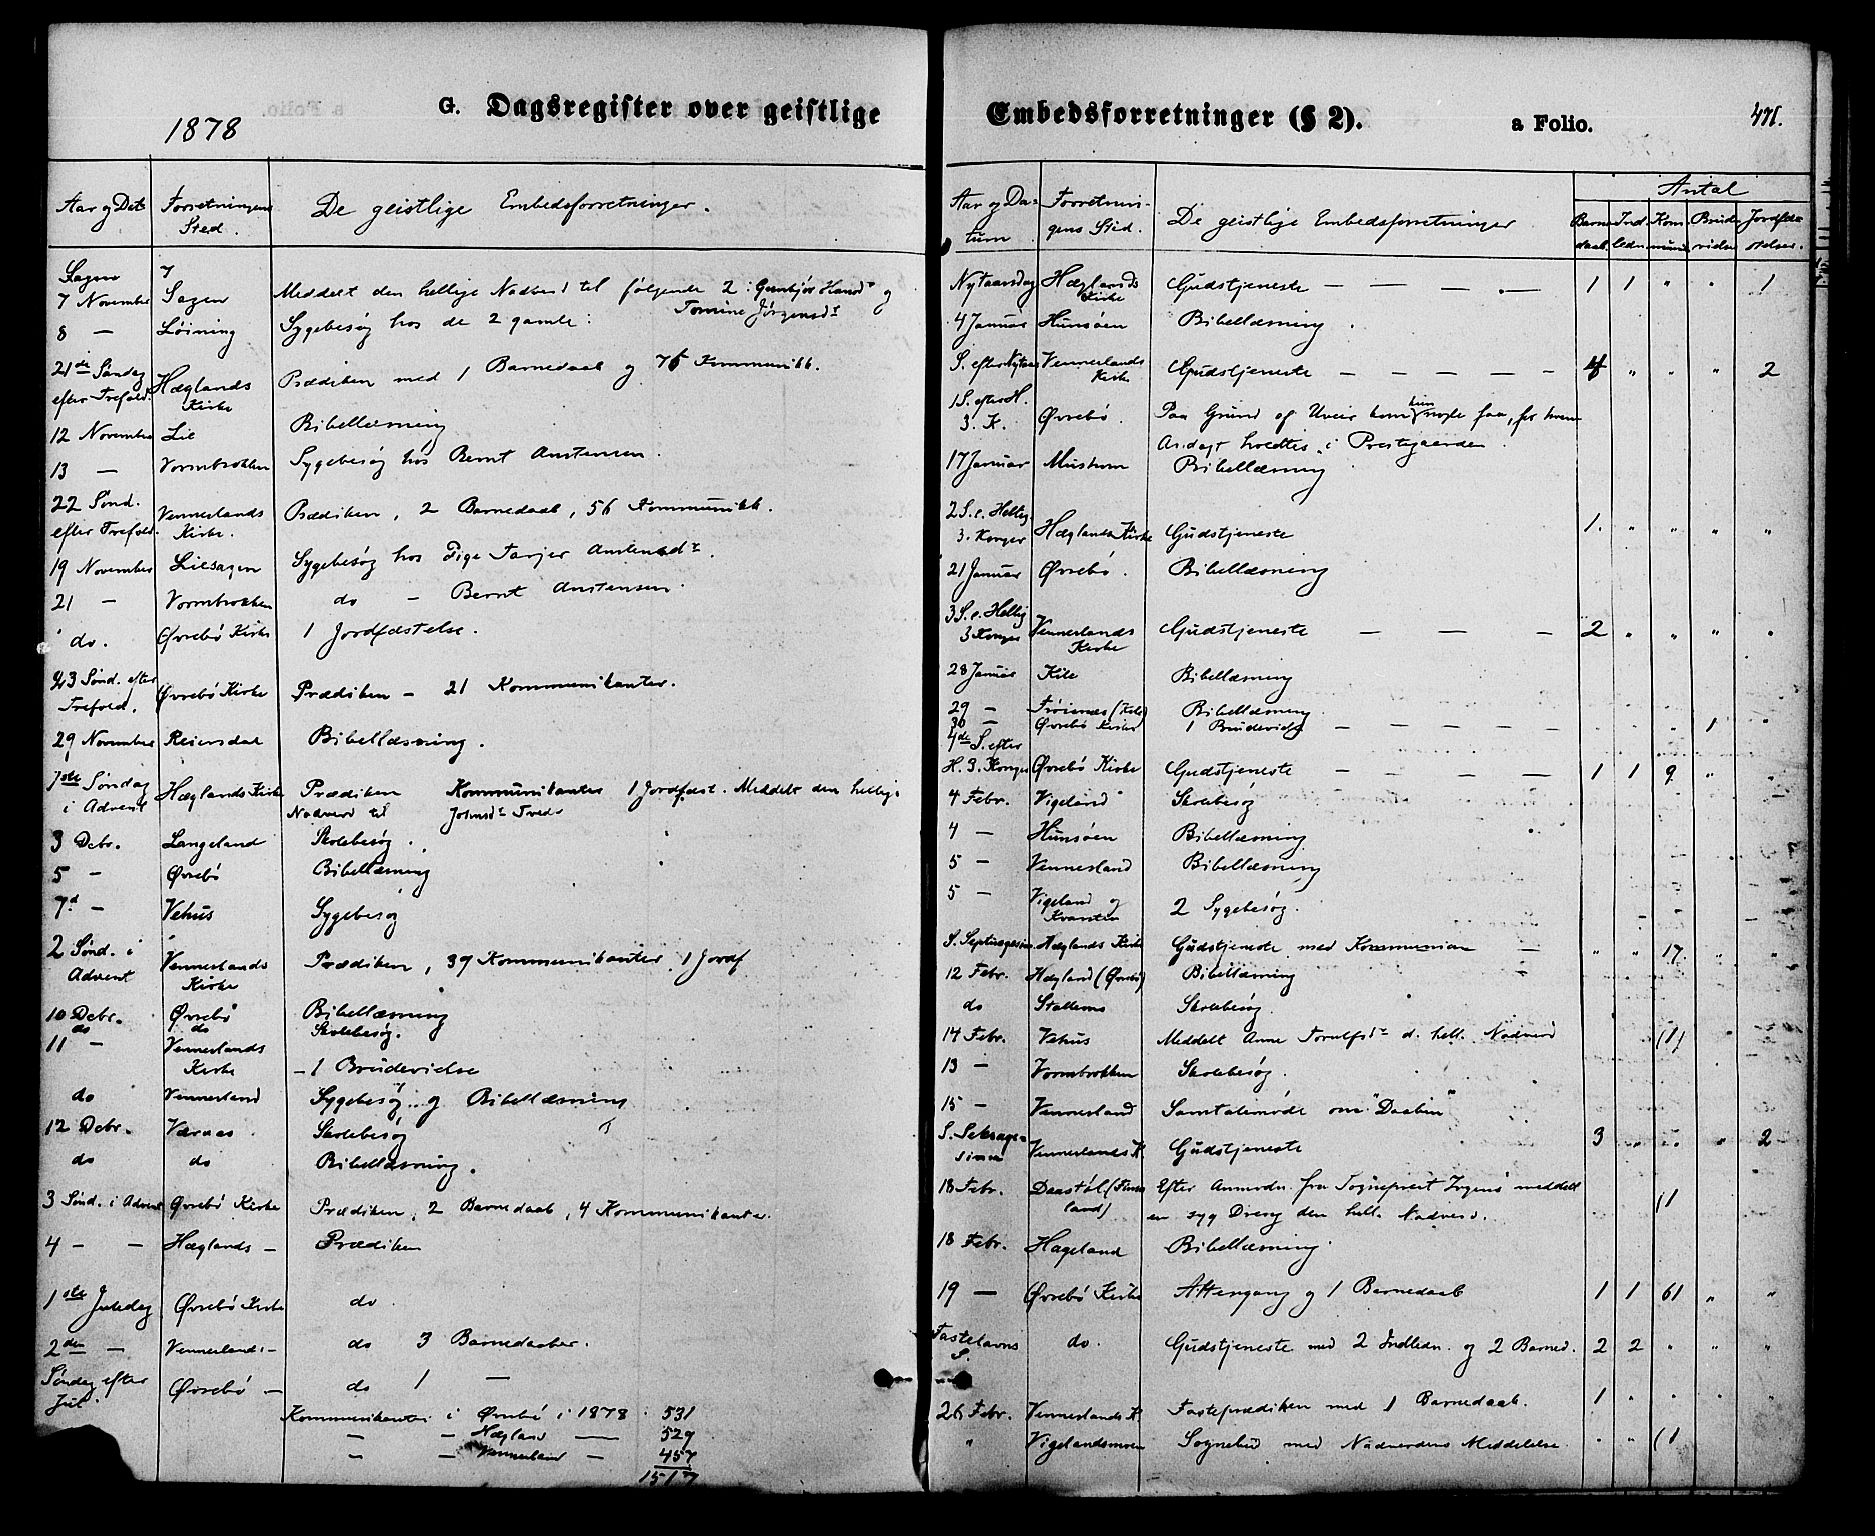 G. Dagsregister over geistlige
1878
Aar og Dat. Forretningens Sted. De geistlige Embedsforretninger.
7 November Sagen Meddelt den hellige Nadverd til følgende 2: Gunbjør Hansd og
Tomine Jørgensdr
8 — Løining Sygebesøg hos de 2 gamle:
21de Søndag efter Trefold. Hæglands Kirke Prædiken med 1 Barnedaab og 76 Kommunikk.
12 November Lie Bibellæsning
13 — Vormbrokken Sygebesøg hos Bernt Anstensen.
22 Sønd. efter Trefold. Vennerlands Kirke. Prædiken, 2 Barnedaab, 56 Kommunikk.
19 November Liesagen Sygebesøg hos Pige Tarjer
21 — Vormbrokken do — Bernt Anstensen.
do. Øvrebø Kirke 1 Jordfæstelse.
23 Sønd. efter Trefold. Øvrebø Kirke Prædiken — 21 Kommunikanter.
29 November Reiersdal Bibellæsning.
1ste Søndag i Advent Hæglands Kirke Prædiken Kommunikanter 1 Jordfæst. Meddelt den hellige
Nadverd til
3 Debr. Langeland Skolebesøg.
5 — Øvrebø Bibellæsning
7d — Vehus Sygebesøg
2 Sønd. i Advent Vennerlands Kirke Prædiken, 39 Kommunikanter, 1 Jordf
10 Debr. Øvrebø Bibellæsning
do do Skolebesøg.
11 — Vennerlands Kirke — 1 Brudevielse
do Vennerland Sygebesøg og Bibellæsning
12 Debr. Værnes. Skolebesøg
do do Bibellæsning.
3 Sønd. i Advent Øvrebø Kirke Prædiken, 2 Barnedaab, 4 Kommunikanter.
4 — — Hæglands — Prædiken
1ste Juledag Øvrebø Kirke do.
2den — Vennerlands — do 3 Barnedaaber.
Søndag efter Jul. Øvrebø — do 1 —
Kommunikanter i Øvrebø i 1878 531
— - Hægland — 529
— - Vennerland — 457
1517
Embedsforretninger (§ 2). a Folio. 471.
Aar og Datum Forretningens Sted. De geistlige Embedsforretninger Antal
Barnedaab Indledn. Kommunik. Brudevielser Jordfæstelser.
Nytaarsdag Hæglands Kirke Gudstjeneste — — — — 1 1 " " 1
4 Januar Hunsøen Bibellæsning.
S. efter Nytaar Vennerlands Kirke Gudstjeneste — — — — — 4 " " " 2
1 S. efter H. 3. K. Øvrebø. Paa Grund af Uveir kom kun nogle faa, for hvem
Andagt holdtes i Prestegaarden.
17 Januar Bibellæsning
2 S. e. Hellig 3. Konger Hæglands Kirke Gudstjeneste 1. " " " "
21 Januar Øvrebø. Bibellæsning
3 S. e. Hellig 3 Konger Vennerlands Kirke Gudstjeneste — — — 2 " " " "
28 Januar Kile Bibellæsning
29 — Frøisnæs (Kile) Bibellæsning
30 — Øvrebø Kirke 1 Brudevielse — — — 1 "
4de S. efter H. 3. Konger Øvrebø Kirke Gudstjeneste — — — 1 1 9 " "
4 Febr. Vigeland Skolebesøg
4 — Hunsøen Bibellæsning
5 — Vennesland Bibellæsning
5 — Vigeland og Kvarsten 2 Sygebesøg.
S. Septuagesima Hæglands Kirke Gudstjeneste med Kommunion — " " 17 " "
12 Febr. Hægland (Øvrebø) Bibellæsning
do Stallemo Skolebesøg.
14 Febr. Vehus Meddelt Anne d. hell. Nadverd (1)
13 — Vormbrokken Skolebesøg.
15 — Vennerland Samtalemøde om "Daaben"
S. Seksagesima Vennerlands K. Gudstjeneste 3 " " " 2
18 Febr. Daastøl Efter Anmodn. fra Sogneprest meddelt
en syg Dreng den hell. Nadverd. (1
18 Febr. Hageland Bibellæsning.
19 — Øvrebø Kirke Altergang og 1 Barnedaab 1 1 61 " "
Fastelavns S. do. Gudstjeneste med 2 Indledn. og 2 Barned. 2 2 " " "
26 Febr. Vennerlands K. Fasteprædiken med 1 Barnedaab. 1 " " " "
" Vigelandsmoen Sognebud med Nadverdens Meddelelse. " " (1